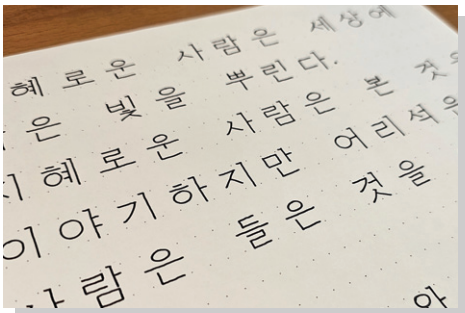 혜로운 사람은 세상에
은 빛을 뿌린다.
지혜로운 사람은 본 것
이야기하지만 어리석은
사람은 들은 것을